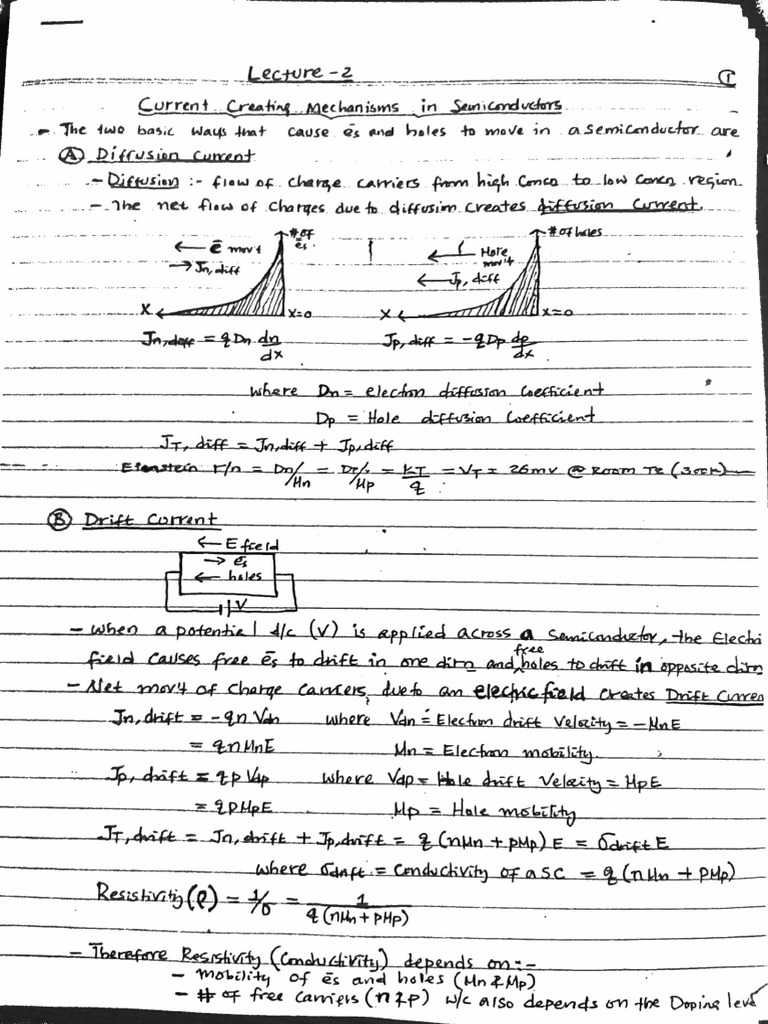 Lecture - 2
①
Current Creating Mechanisms in Semiconductors
- The two basic ways that cause ēs and holes to move in a semiconductor are
Ⓐ Diffusion Current
- Diffusion :- flow of charge carriers from high Concn to low concn region
- The net flow of charges due to diffusion creates diffusion Current.
← ē mov't
→ Jn, diff
# of ēs
X
X=0
← Hole mov't
← Jp, diff
# of holes
X
X=0
Jn, diff = qDn dn/dx
Jp, diff = -qDp dp/dx
where Dn = electron diffusion Coefficient
Dp = Hole diffusion Coefficient
JT, diff = Jn,diff + Jp,diff
Einstein r/n = Dn/μn = Dp/μp = KT/q = VT = 26mv @ Room Te (300K)
Ⓑ Drift Current
← E field
→ ēs
← holes
V
- When a potential d/c (V) is applied across a Semiconductor, the Electri
field causes free ēs to drift in one dirn and free holes to drift in opposite dirn
- Net mov't of charge carriers, due to an electric field creates Drift Curren
Jn, drift = -qn Vdn where Vdn = Electron drift Velocity = -μnE
= qnμnE μn = Electron mobility.
Jp, drift = qp Vdp where Vdp = Hole drift Velocity = μpE
= qpμpE μp = Hole mobility
JT, drift = Jn, drift + Jp, drift = q (nμn + pμp) E = σdrift E
where σdrift = Conductivity of a SC = q (nμn + pμp)
Resistivity (ρ) = 1/σ = 1/q (nμn + pμp)
- Therefore Resistivity (Conductivity) depends on :-
- mobility of ēs and holes (μn & μp)
- # of free carriers (n & p) w/c also depends on the Doping level